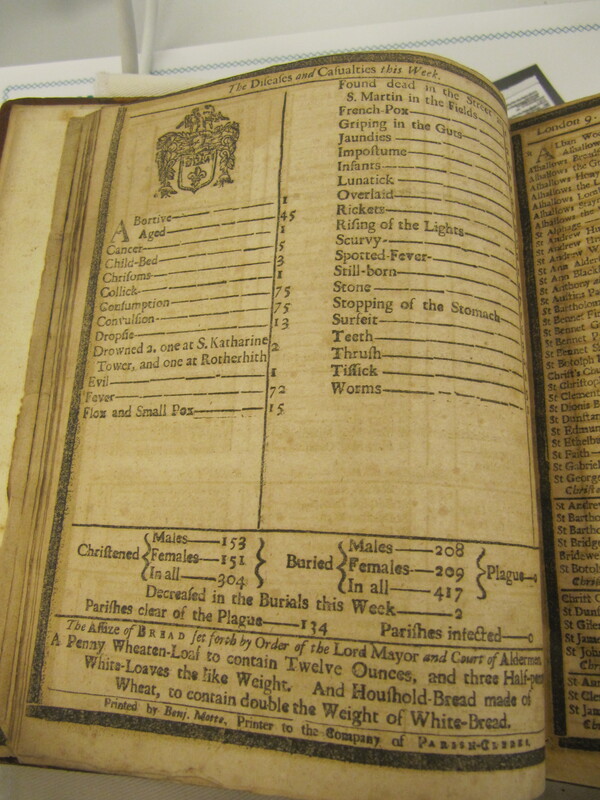 The Diseases and Casualties this Week.
ABortive——1
Aged——45
Cancer——1
Child-Bed——5
Chrisoms——3
Collick——1
Consumption——75
Convulsion——75
Dropsie——13
Drowned 2, one at S. Katharine
Tower, and one at Rotherhith 2
Evil——1
Fever——72
Flox and Small Pox——15
Found dead in the Street
S. Martin in the Fields
French-Pox——
Griping in the Guts——
Jaundies——
Impostume——
Infants——
Lunatick——
Overlaid——
Rickets——
Rising of the Lights——
Scurvy——
Spotted-Fever——
Still-born——
Stone——
Stopping of the Stomach——
Surfeit——
Teeth——
Thrush——
Tissick——
Worms——
Christened { Males——153
Females——151
In all——304 }
Buried { Males——208
Females——209
In all——417 } Plague—0
Decreased in the Burials this Week——2
Parishes clear of the Plague——134 Parishes infected——0
The Assize of BREAD set forth by Order of the Lord Mayor and Court of Aldermen
A Penny Wheaten-Loaf to contain Twelve Ounces, and three Half-peny
White-Loaves the like Weight. And Houshold-Bread made of
Wheat, to contain double the Weight of White-Bread.
Printed by Benj. Motte, Printer to the Company of PARISH-CLERKS.
London 9
St Andrew Hu
St Ann Alder
St Ann Black
St Anthony
St Austins Pa
St Bartholom
St Bennet Fi
St Bennet G
St Bennet P
St Botolph
Christ's Chu
St Christop
St Clement
St Dionis B
St Dunstan
St Edmun
St Ethelbu
St Faith—
St Gabriel
St George
St Andre
St Bartho
St Bartho
St Bridge
Bridewe
St Botol
Christ C
St Dunst
St Giles
St Jame
St John
St Ann
St Cle
St Jam